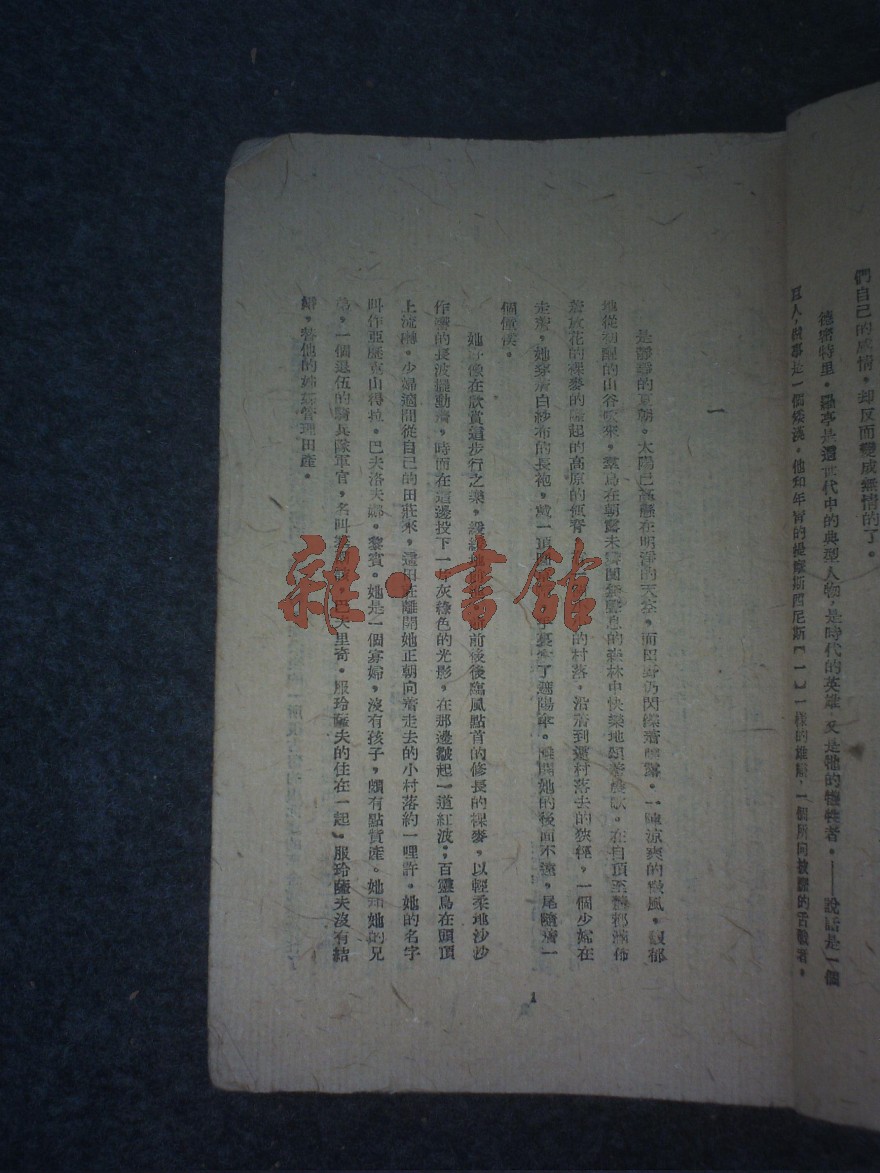 們自己的感情，却反而變成無情的了。
德密特里·羅亭是這世代中的典型人物，是時代的英雄，又是牠的犧牲者。——說話是一個
巨人，做事是一個矮漢。他如年青的提摩斯西尼斯【一】一樣的雄辯，一個所向披靡的舌戰者。
一
是靜靜的夏朝。太陽已高懸在明淨的天空，而田野仍閃爍着露。一陣涼爽的微風，馥郁
地從初醒的山谷吹來，羣鳥在朝露未息的森林中快樂地頌着晨歌。在自頂至麓都滿佈
着放花的裸麥的隆起的高原的的村落。沿着到這村落去的狹徑，一個少婦在
走着，她穿着白紗布的長袍，戴一頂了遮陽傘。離開她的後面不遠，尾隨着一
個僮僕。
她好像在欣賞這步行之樂，緩緩地前前後後臨風點首的修長的裸麥，以輕柔地沙沙
作響的長波擺動着，時而在這邊投下一灰綠色的光影，在那邊皺起一道紅波；百靈鳥在頭頂
上流囀。少婦適間從自己的田莊來，這田莊離開她正朝向着走去的小村落約一哩許。她的名字
叫作亞歷克山得拉·巴夫洛夫娜·黎賓。她是一個寡婦，沒有孩子，頗有點資產。她和她的兄
弟，一個退伍的騎兵隊軍官，名叫巴夫里奇·服玲薩夫的住在一起。服玲薩夫沒有結
婚，替他的姊姊管理田產。
1
雜·書館